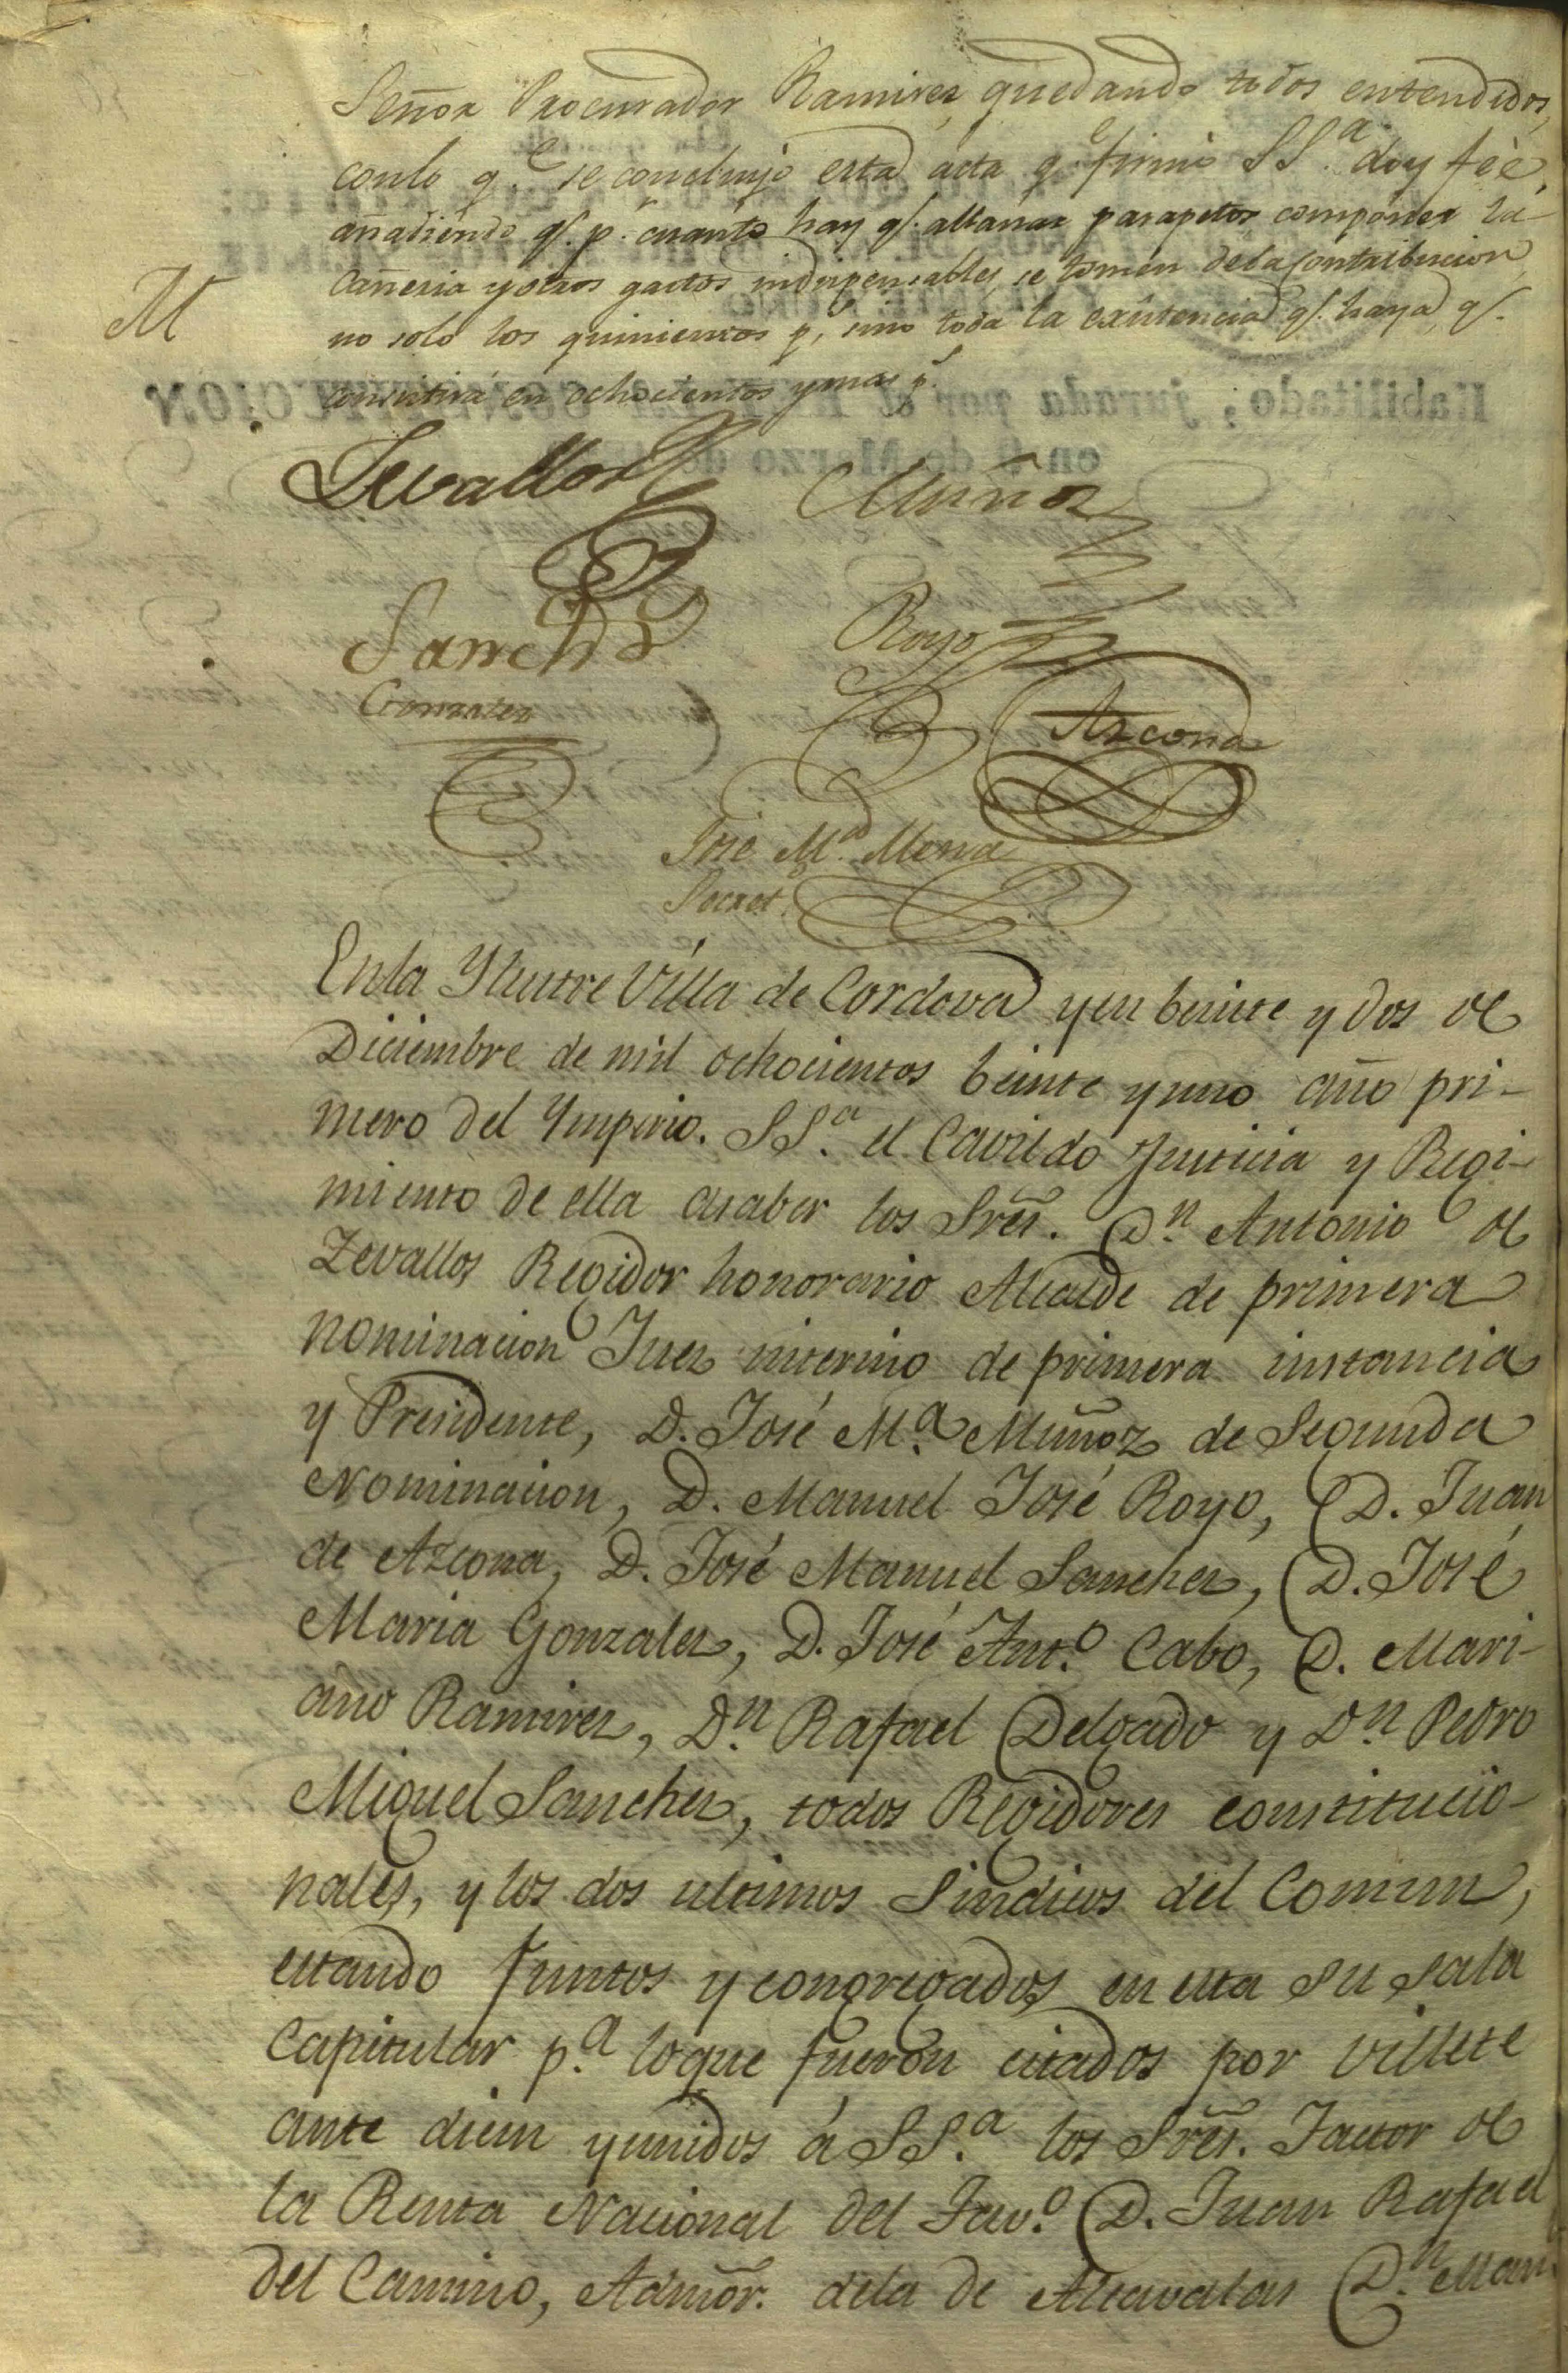 Señor Procurador Ramirez, quedando todos entendidos,
con lo q.e se concluyó esta acta q.e firmó SS.a doy feé,
añadiendo q.e p.r cuanto hay q.e allanar parapetos, componer la
Cañeria y otros gastos indispensables, se tomen de la contribucion
M
no solo los quinientos p.s sino toda la existencia q.e haya, q.e
consistirá en ochocientos y mas p.s
Habilitado, jurada por el
CONSTITUCION
en 9 de Marzo de
Zevallos
Muñoz
Sanchez
Royo
Gonzalez
Azcona
José M.a Mena
Secret.o
En la Ylustre Villa de Cordova y en beinte y dos de
Diciembre de mil ochocientos beinte y uno año pri-
mero del Ymperio. SS.a el Cavildo Justicia y Regi-
miento de ella asaber los Sres. D.n Antonio de
Zevallos Regidor honorario Alcalde de primera
nominacion Juez interino de primera instancia
y Presidente, D. José M.a Muñoz de Segunda
Nominacion, D. Manuel José Royo, D. Juan
de Azcona, D. José Manuel Sanchez, D. José
Maria Gonzalez, D. José Ant.o Cabo, D. Mari-
ano Ramirez, D.n Rafael Delgado y D.n Pedro
Miguel Sanchez, todos Regidores constitucio-
nales, y los dos ultimos Sindicos del Comun,
estando Juntos y congregados en esta su sala
Capitular p.a loque fueron citados por villete
ante diem y unidos á SS.a los Sres. Factor de
la Renta Nacional del Tav.o D. Juan Rafael
del Camino, Admor. dela de Alcavalas D.n Man